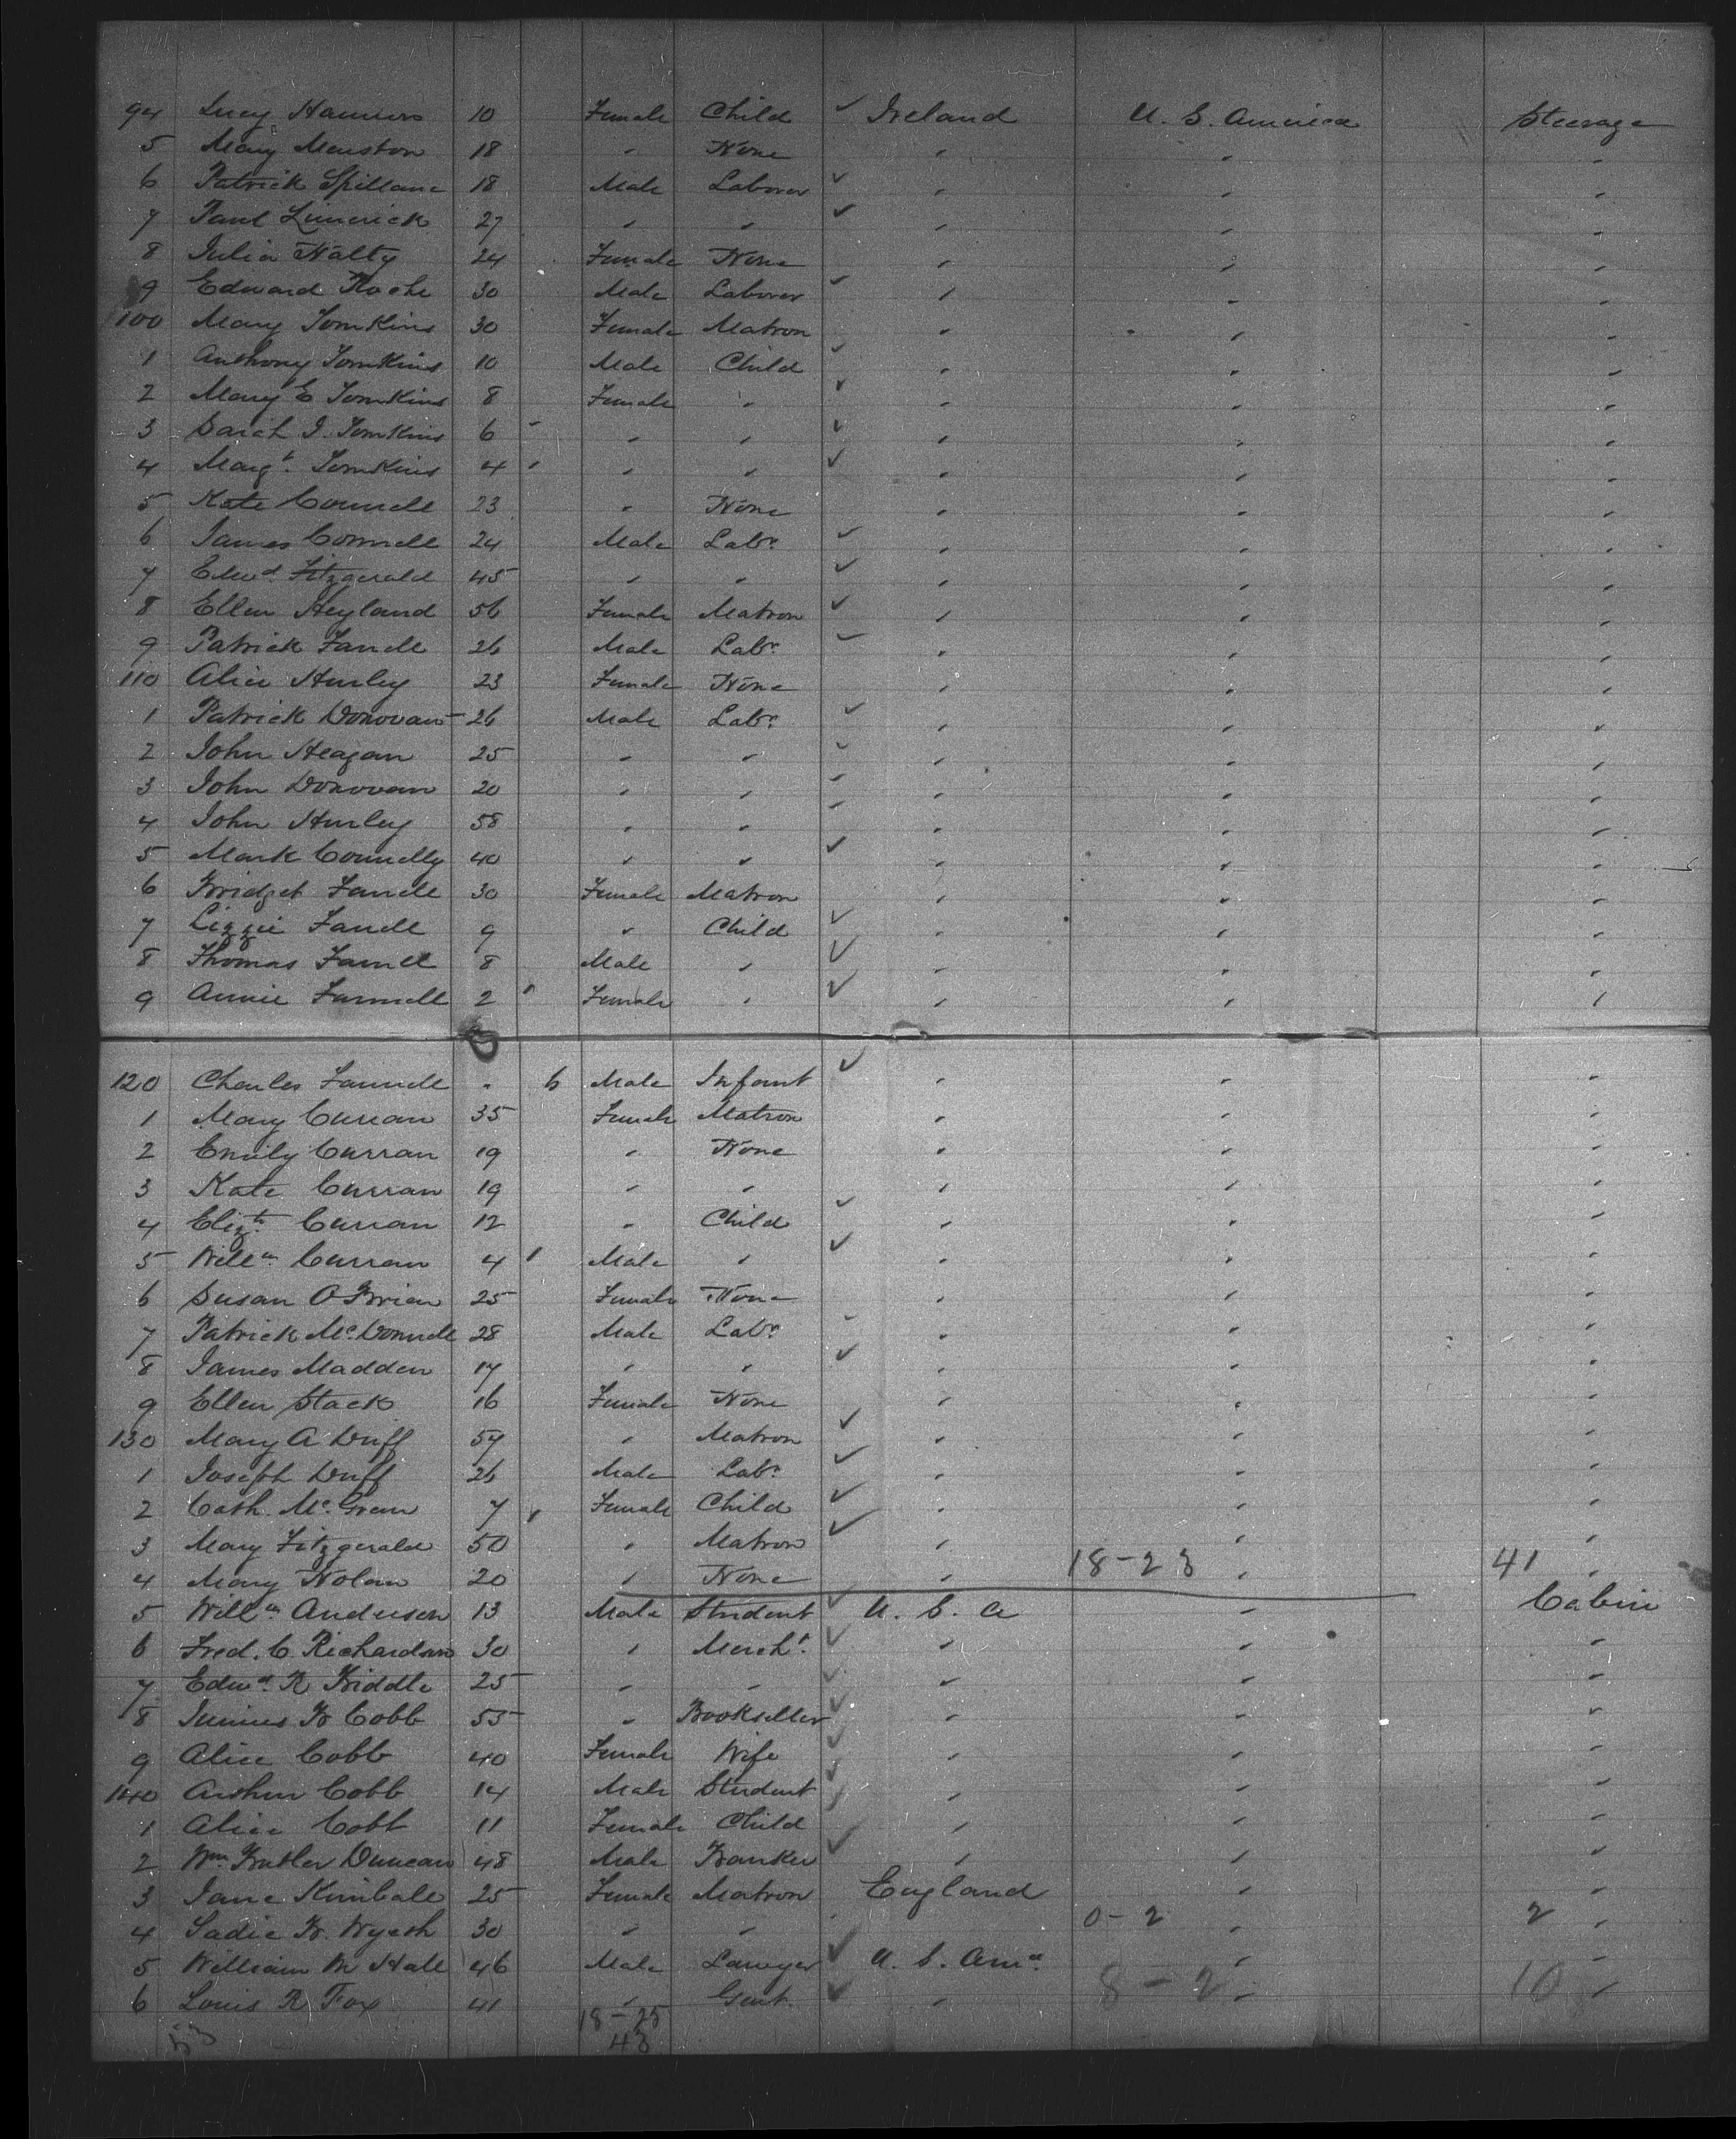 94 Lucy 10 Female Child ✓ Ireland U. S. America Steerage
5 Mary 18 " None " " "
6 Patrick Spillane 18 Male Laborer ✓ " " "
7 Paul Limerick 27 " " ✓ " " "
8 Julia Nalty 24 Female None " " "
9 Edward Roche 30 Male Laborer ✓ " " "
100 Mary Tomkins 30 Female Matron " " "
1 Anthony Tomkins 10 Male Child ✓ " " "
2 Mary E Tomkins 8 Female " ✓ " " "
3 Sarah J. Tomkins 6 " " ✓ " " "
4 Margt. Tomkins 4 " " ✓ " " "
5 Kate Connell 23 " None " " "
6 James Connell 24 Male Labr. ✓ " " "
7 Edwd. Fitzgerald 45 " " ✓ " " "
8 Ellen Heyland 56 Female Matron ✓ " " "
9 Patrick 26 Male Labr. ✓ " " "
110 Alice Hurley 23 Female None " " "
1 Patrick Donovan 26 Male Labr. ✓ " " "
2 John Heagan 25 " " ✓ " " "
3 John Donovan 20 " " ✓ " " "
4 John Hurley 58 " " ✓ " " "
5 Mark Connelly 40 " " ✓ " " "
6 Bridget 30 Female Matron " " "
7 Lizzie 9 " Child ✓ " " "
8 Thomas 8 Male " ✓ " " "
9 Annie 2 Female " ✓ " " "
120 Charles " 6 Male Infant ✓ " " "
1 Mary Curran 35 Female Matron " " "
2 Emily Curran 19 " None " " "
3 Kate Curran 19 " " " " "
4 Elizth. Curran 12 " Child ✓ " " "
5 Willm. Curran 4 Male " ✓ " " "
6 Susan O'Brien 25 Female None " " "
7 Patrick McDonnell 28 Male Labr. ✓ " " "
8 James Madden 17 " " ✓ " " "
9 Ellen Stack 16 Female None " " "
130 Mary A Duff 54 " Matron ✓ " " "
1 Joseph Duff 26 Male Labr. ✓ " " "
2 Cath. Mc 7 Female Child ✓ " " "
3 Mary Fitzgerald 50 " Matron ✓ " " "
4 Mary Nolan 20 " None " 18-23 " 41 "
5 Willm Anderson 13 Male Student ✓ U. S. A " Cabin
6 Fred. C Richardson 30 " Mercht. ✓ " " "
7 Edwd. R Biddle 25 " " ✓ " " "
8 Junius B Cobb 55 " Bookseller ✓ " " "
9 Alice Cobb 40 Female Wife ✓ " " "
140 Arthur Cobb 14 Male Student ✓ " " "
1 Alice Cobb 11 Female Child " " "
2 Wm Butler Duncan 48 Male Banker ✓ " " "
3 Jane Kimball 25 Female Matron England " "
4 Sadie B. 30 " " 0-2 " 2 "
5 William W Hall 46 Male Lawyer ✓ U. S. Ama. " "
6 Louis R Fox 41 " Gent. ✓ " 8-2 " 10 "
53 18-25
43